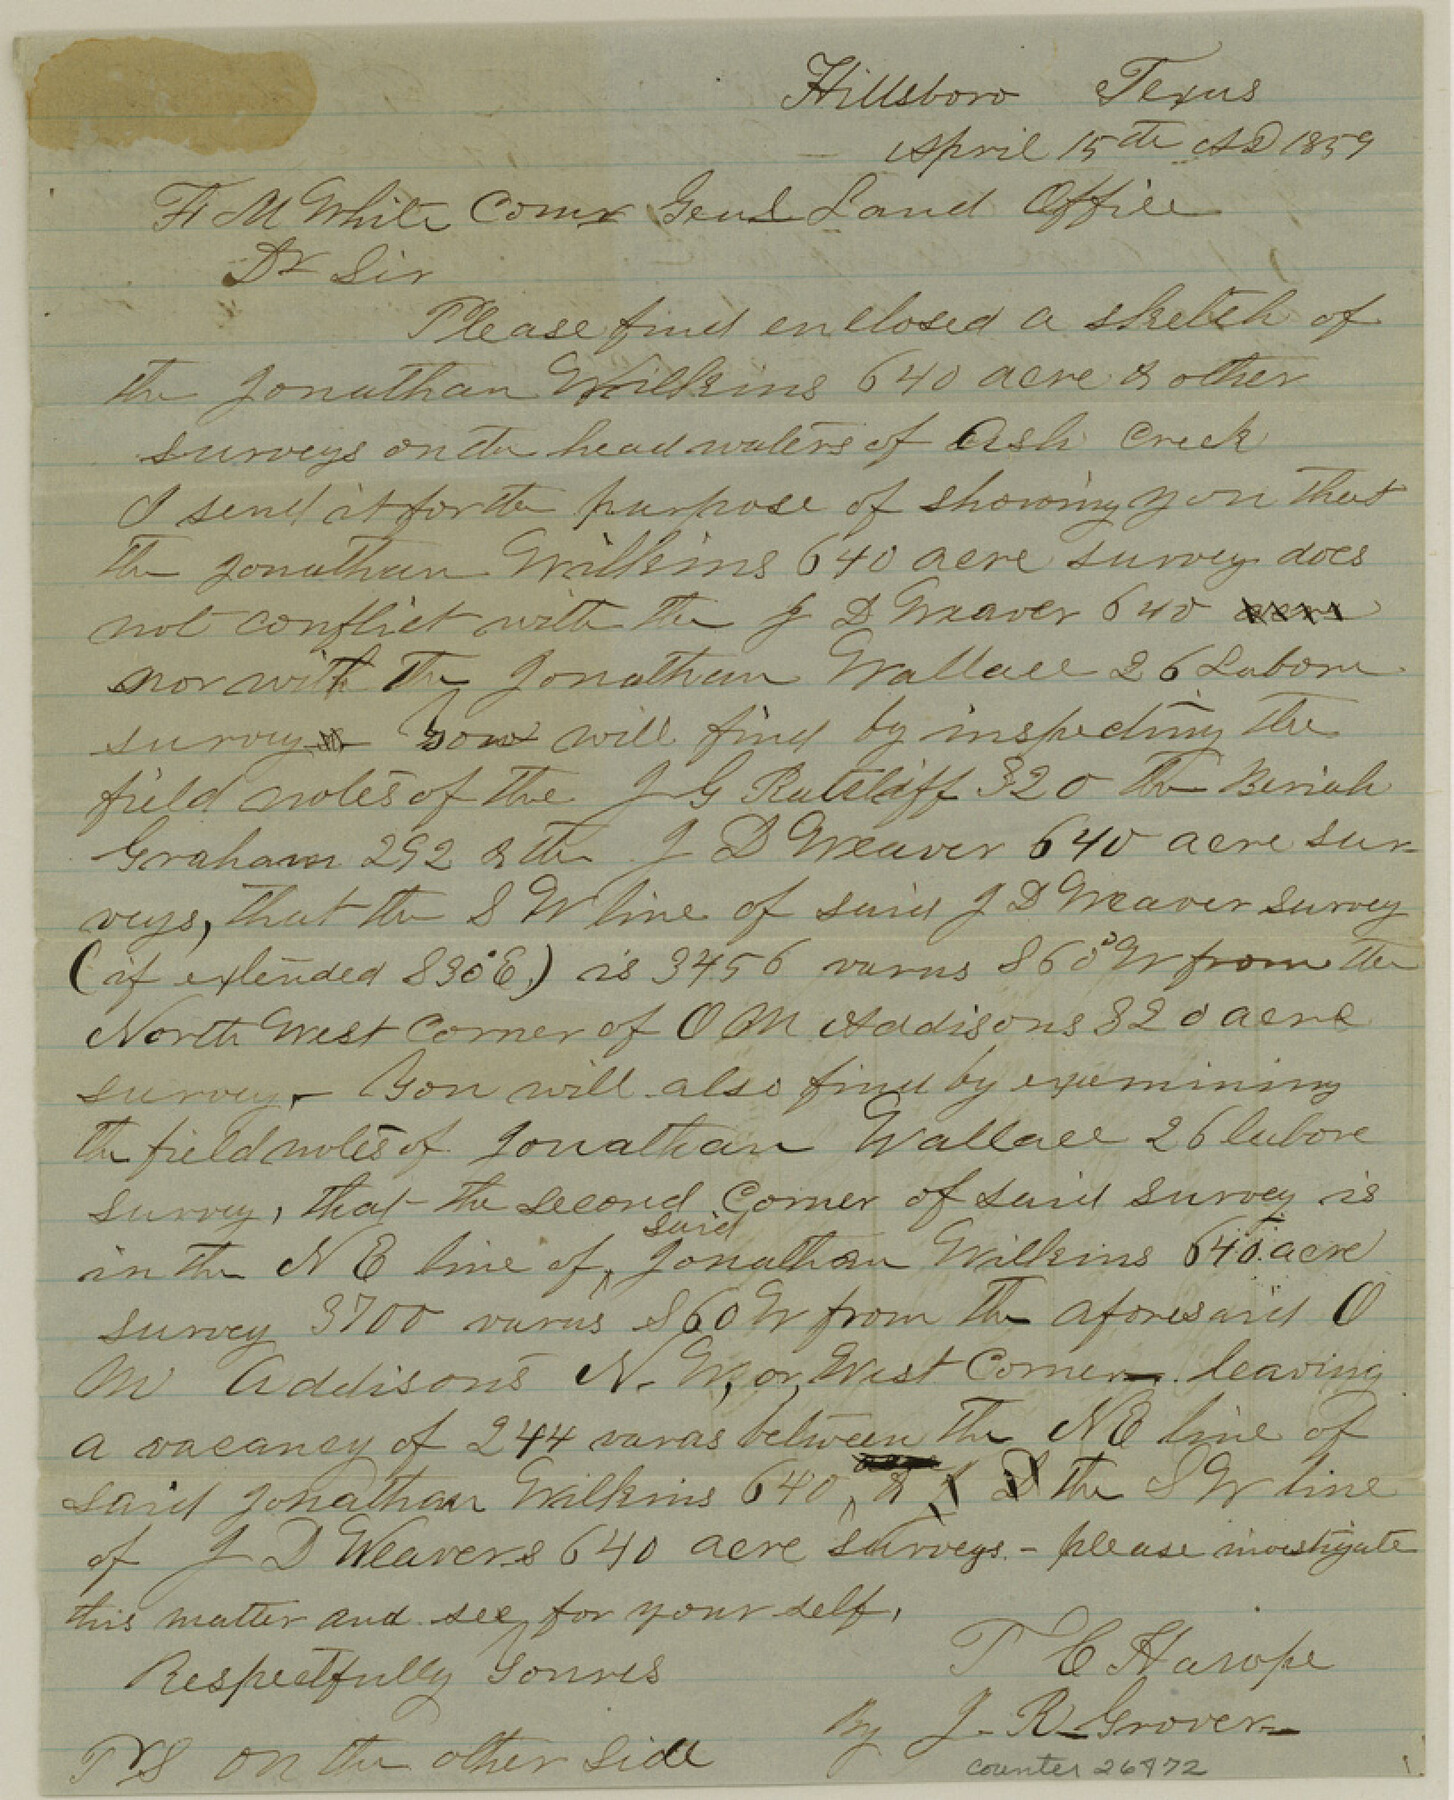 Hillsboro Texas
April 15th AD 1859
F M White Comr Genl Land Office
Dr Sir
Please find enclosed a sketch of
the Jonathan Wilkins 640 acre & other
surveys on the head waters of Ash Creek
I send it for the purpose of showing you that
the Jonathan Wilkins 640 acre survey does
not conflict with the J D Weaver 640
nor with the Jonathan Wallace 26 Labore
survey You will find by inspecting the
field notes of the J G Ratcliff 320 the Beriah
Graham 292 & the J D Weaver 640 acre sur-
veys, that the S W line of said J D Weaver survey
(if extended S30°E.) is 3456 varas S60°W from the
North West Corner of O M Addisons 320 acre
survey,- You will also find by examining
the field notes of Jonathan Wallace 26 labore
survey, that the second Corner of said survey is
in the N E line of ^said Jonathan Wilkins 640 acre
survey 3700 varas S60W from the aforesaid O
M Addison's N. W, or, West Corner leaving
a vacancy of 244 varas between the NE line of
said Jonathan Wilkins 640, & the S W line
of J D Weavers 640 acre surveys - please investigate
this matter and see for your self,
Respectfully Yours
T C Harope
By J. R Grover
P S on the other side
counter 26472